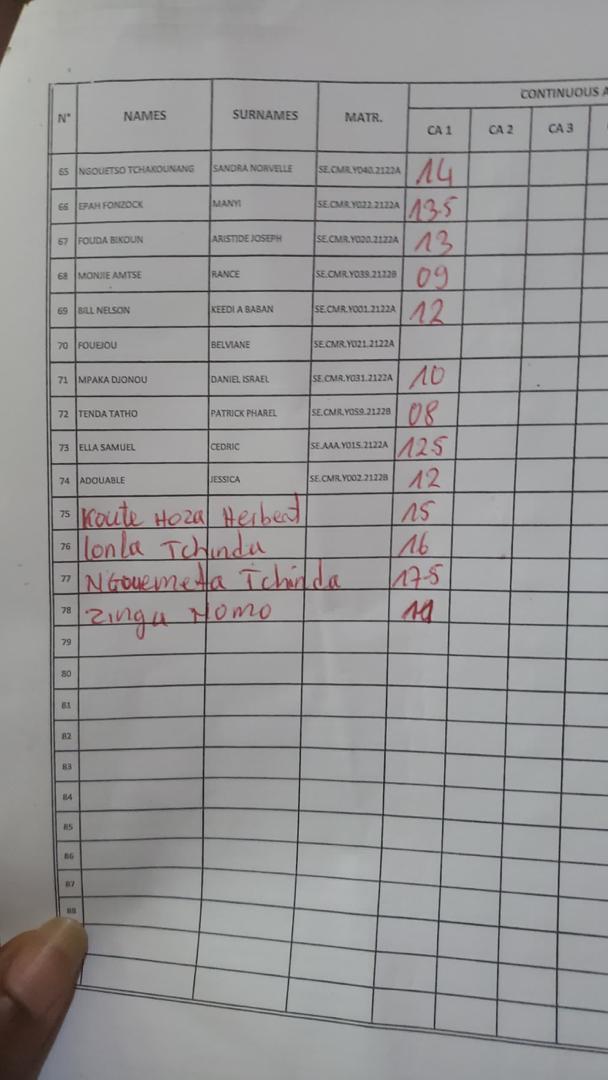 N° NAMES SURNAMES MATR. CONTINUOUS A
CA 1 CA 2 CA 3
65 NGOUETSO TCHAKOUNANG SANDRA NORVELLE SE.CMR.Y040.2122A 14
66 EPAH FONZOCK MANYI SE.CMR.Y022.2122A 13.5
67 FOUDA BIKOUN ARISTIDE JOSEPH SE.CMR.Y020.2122A 13
68 MONJIE AMTSE RANCE SE.CMR.Y039.2122B 09
69 BILL NELSON KEEDI A BABAN SE.CMR.Y001.2122A 12
70 FOUEJOU BELVIANE SE.CMR.Y021.2122A
71 MPAKA DJONOU DANIEL ISRAEL SE.CMR.Y031.2122A 10
72 TENDA TATHO PATRICK PHAREL SE.CMR.Y059.2122B 08
73 ELLA SAMUEL CEDRIC SE.AAA.Y015.2122A 12.5
74 ADOUABLE JESSICA SE.CMR.Y002.2122B 12
75 Koute Hoza Herbert 15
76 Ionla Tchinda 16
77 NGouemeta Tchinda 17.5
78 Zinga Nomo
79
80
81
82
83
84
85
86
87
88